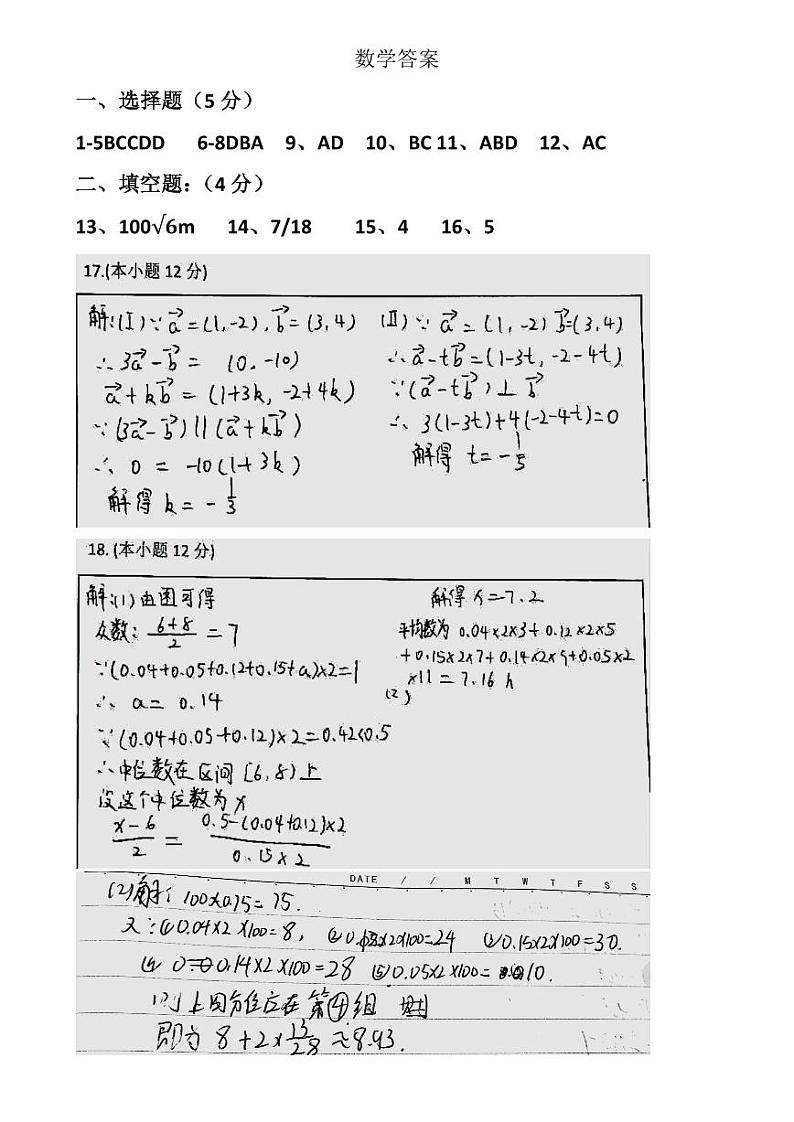 数学答案
一、选择题（5 分）
1-5BCCDD 6-8DBA 9、AD 10、BC 11、ABD 12、AC
二、填空题：（4 分）
13、100√6m 14、7/18 15、4 16、5
17.(本小题 12 分)
解:(Ⅰ)∵ a⃗=(1,-2), b⃗=(3,4)
∴3a⃗-b⃗ = (0,-10)
a⃗+kb⃗ = (1+3k, -2+4k)
∵(3a⃗-b⃗)∥(a⃗+kb⃗)
∴ 0 = -10(1+3k)
解得 k = -1/3
(Ⅱ)∵ a⃗ = (1,-2) b⃗=(3,4)
∴a⃗-tb⃗=(1-3t, -2-4t)
∵(a⃗-tb⃗)⊥b⃗
∴ 3(1-3t)+4(-2-4t)=0
解得 t=-1/5
18. (本小题 12 分)
解:(1)由图可得
众数: (6+8)/2 = 7
∵(0.04+0.05+0.12+0.15+a)×2=1
∴ a= 0.14
∵(0.04+0.05+0.12)×2=0.42<0.5
∴中位数在区间[6,8)上
设这个中位数为x
(x-6)/2 = (0.5-(0.04+0.12)×2)/(0.15×2)
解得 x=7.2
平均数为 0.04×2×3+0.12×2×5
+0.15×2×7+0.14×2×9+0.05×2
×11=7.16 h
(2)
DATE / / M T W T F S S
(2)解: 100×0.75=75.
又∵①0.04×2×100=8, ②0.12×2×100=24 ③0.15×2×100=30.
④ 0.14×2×100=28 ⑤0.05×2×100=10.
则上四分位应在第④组
即为 8+2×13/28≈8.93.